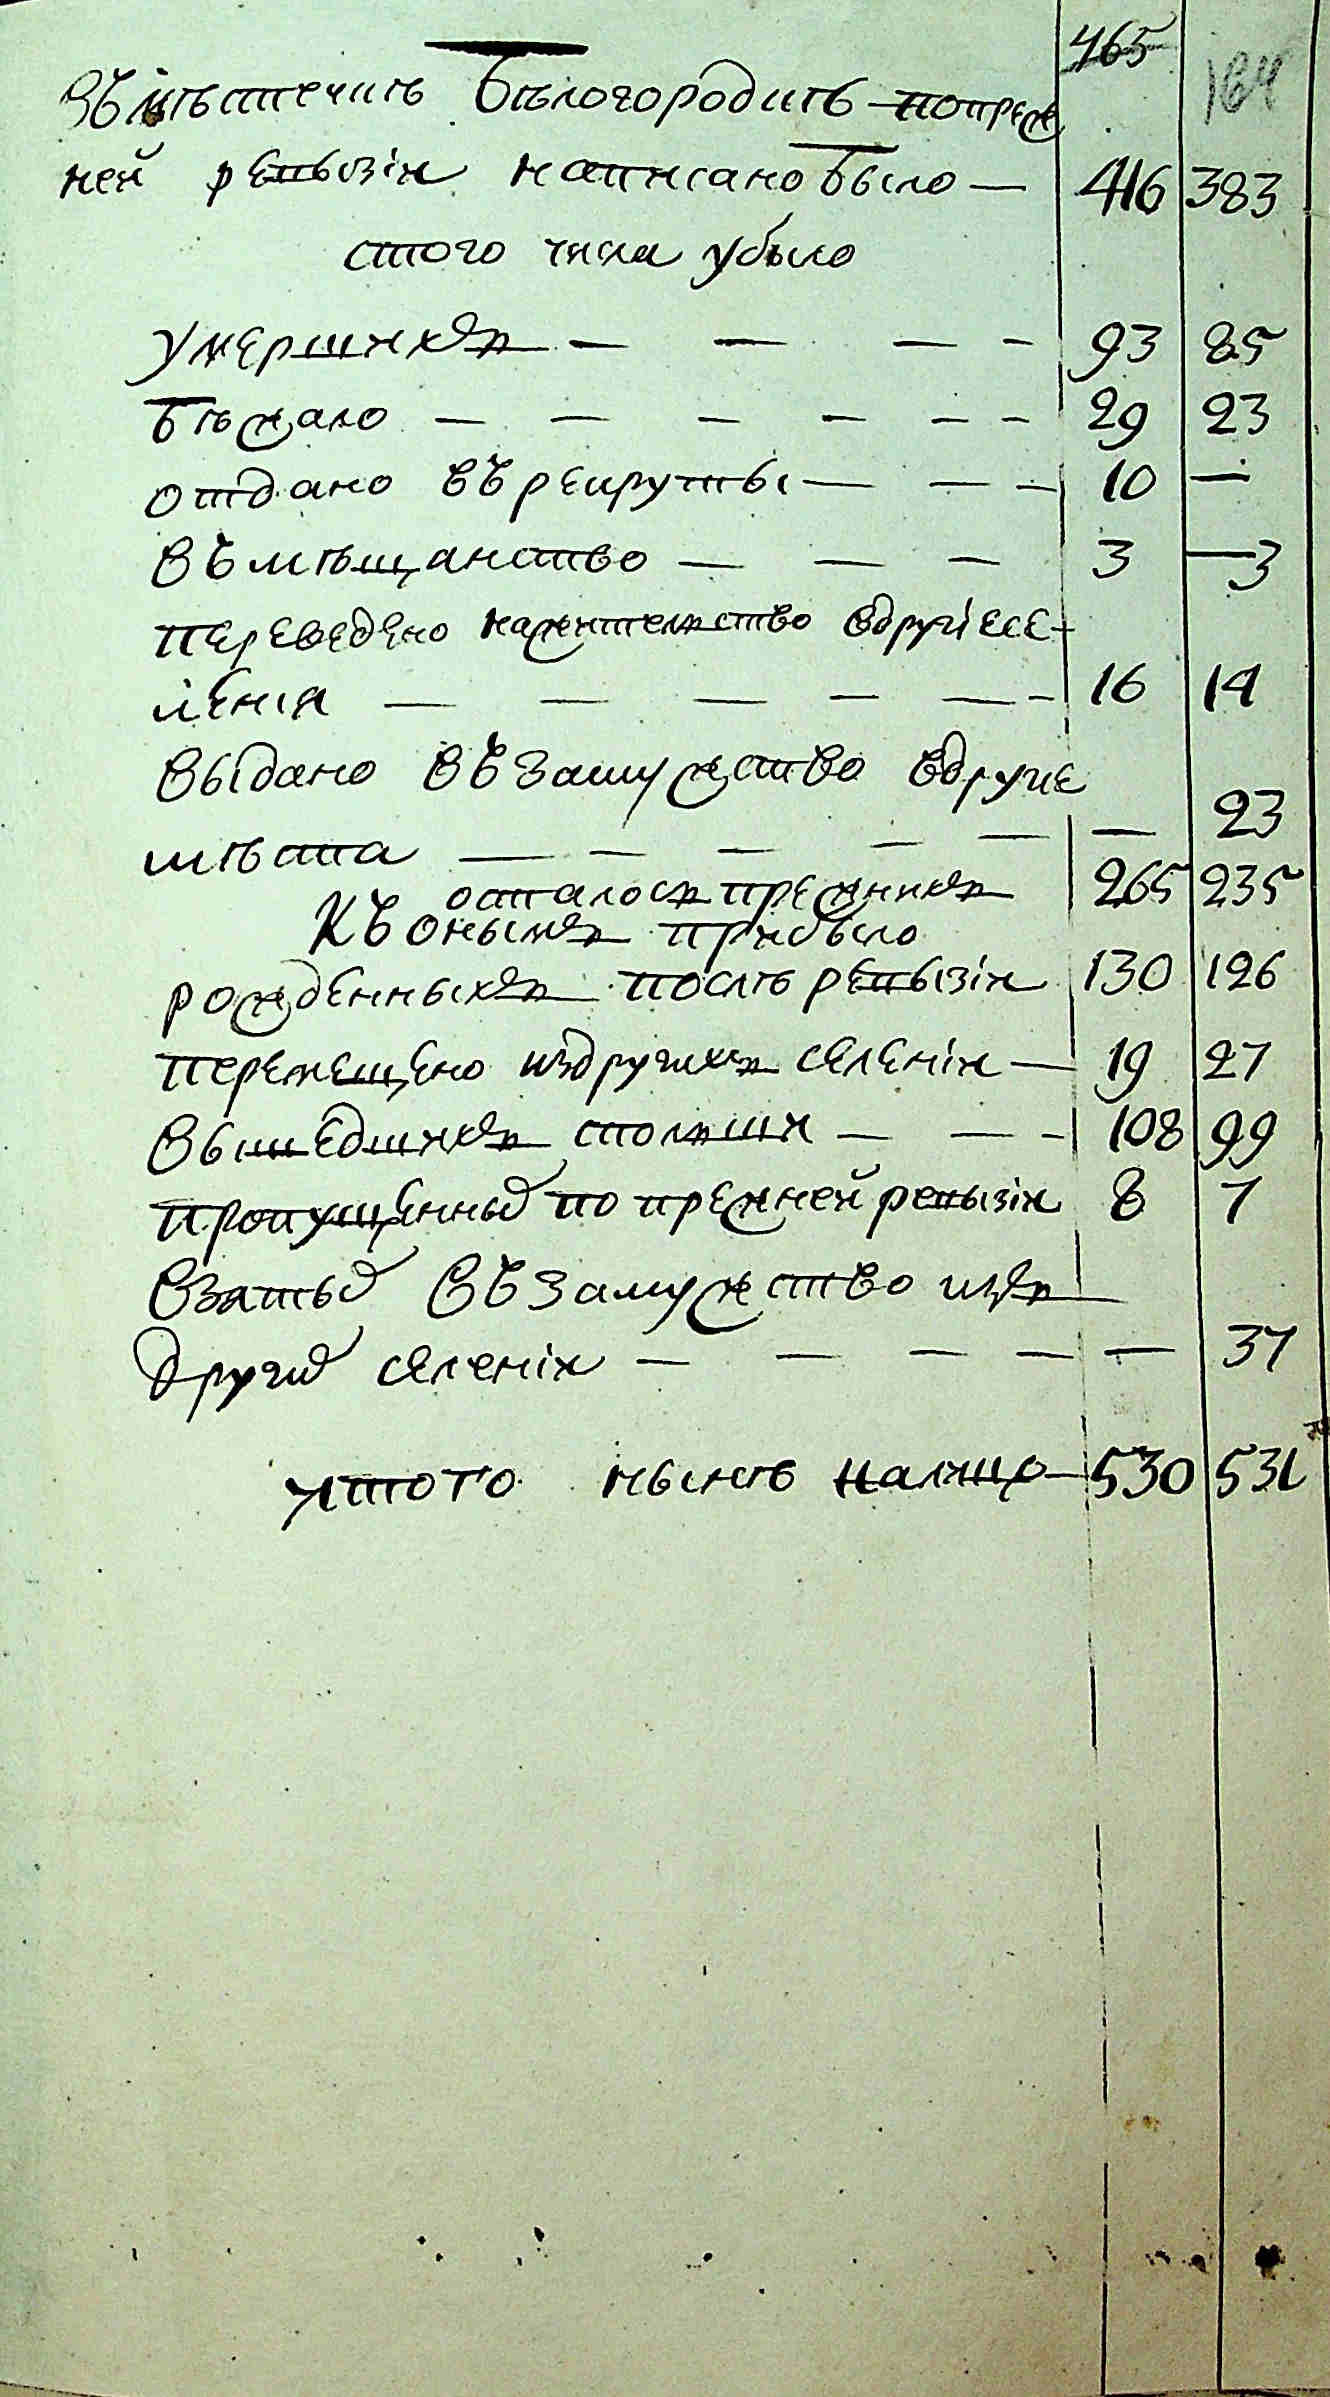 465
164
Въ мѣстечкѣ Бѣлогородкѣ попреж
ней ревызіи написано было — 416 383
стого числа убыло
умершихъ — — — — 93 85
бѣжало — — — — — — 29 23
отдано въ рекруты — — — 10 —
въ мѣщанство — — — 3 — 3
переведено нажительство вдругіе се-
ленія — — — — — — 16 14
выдано въ замужство вдругие
мѣста — — — — — — 23
осталось прежнихъ 265 235
Къ онымъ прибыло
рожденныхъ послѣ ревызіи 130 126
перемещено издругихъ селеніи — 19 27
вышедшихъ спольши — — — 108 99
пропущенныхъ по прежней ревызіи 8 7
взятыхъ въ замужство изъ
другихъ селеніи — — — — — 37
итого нынѣ налицо — 530 531